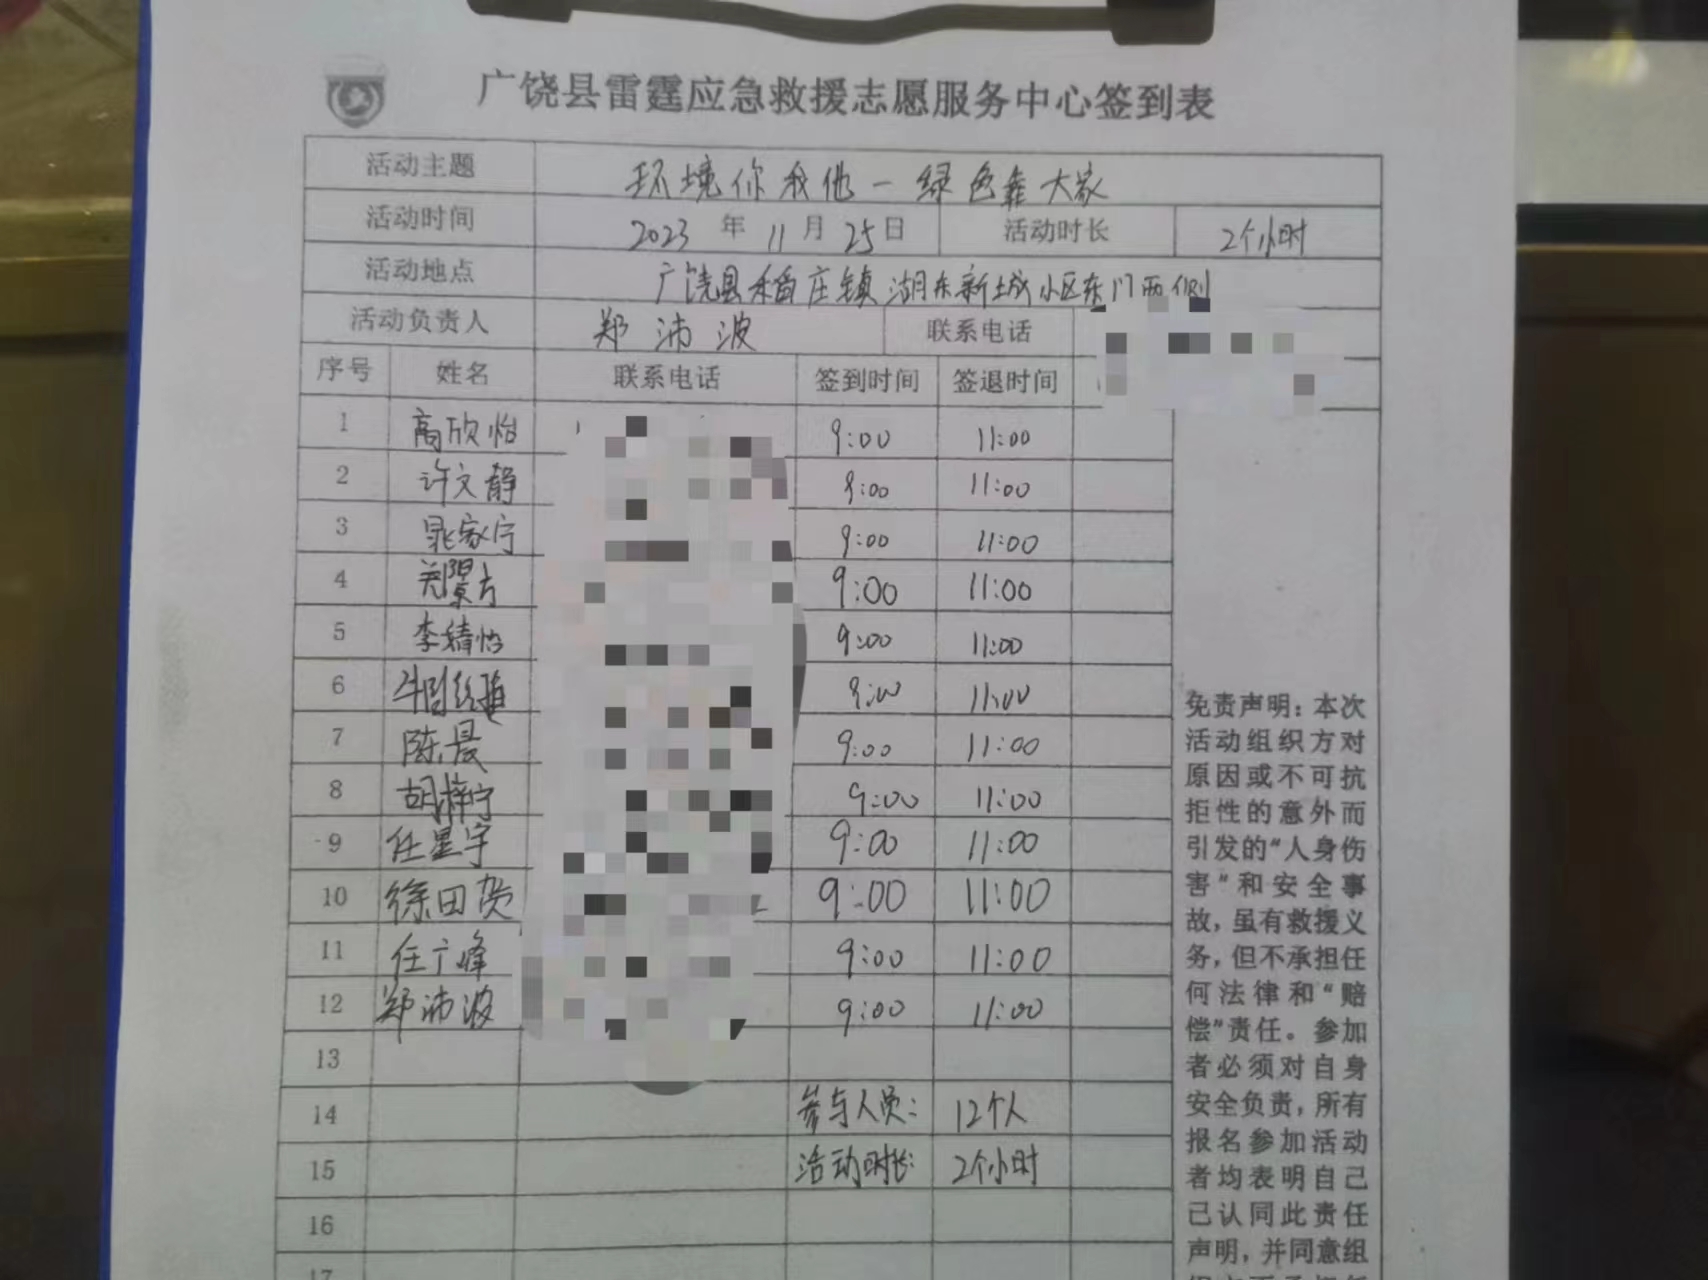 广饶县雷霆应急救援志愿服务中心签到表
活动主题 环境你我他一绿色靠大家
活动时间 2023 年 11 月 25 日 活动时长 2个小时
活动地点 广饶县稻庄镇湖东新城小区东门西侧
活动负责人 郑沛波 联系电话
序号 姓名 联系电话 签到时间 签退时间
1 高欣怡 9:00 11:00
2 许文静 9:00 11:00
3 晁家宁 9:00 11:00
4 郑景方 9:00 11:00
5 李精怡 9:00 11:00
6 9:00 11:00
7 陈晨 9:00 11:00
8 胡梓宁 9:00 11:00
9 任星宇 9:00 11:00
10 徐田贺 9:00 11:00
11 任广峰 9:00 11:00
12 郑沛波 9:00 11:00
13
14 参与人员: 12个人
15 活动时长: 2个小时
16
17
免责声明：本次
活动组织方对
原因或不可抗
拒性的意外而
引发的“人身伤
害”和安全事
故，虽有救援义
务，但不承担任
何法律和“赔
偿”责任。参加
者必须对自身
安全负责，所有
报名参加活动
者均表明自己
已认同此责任
声明，并同意组